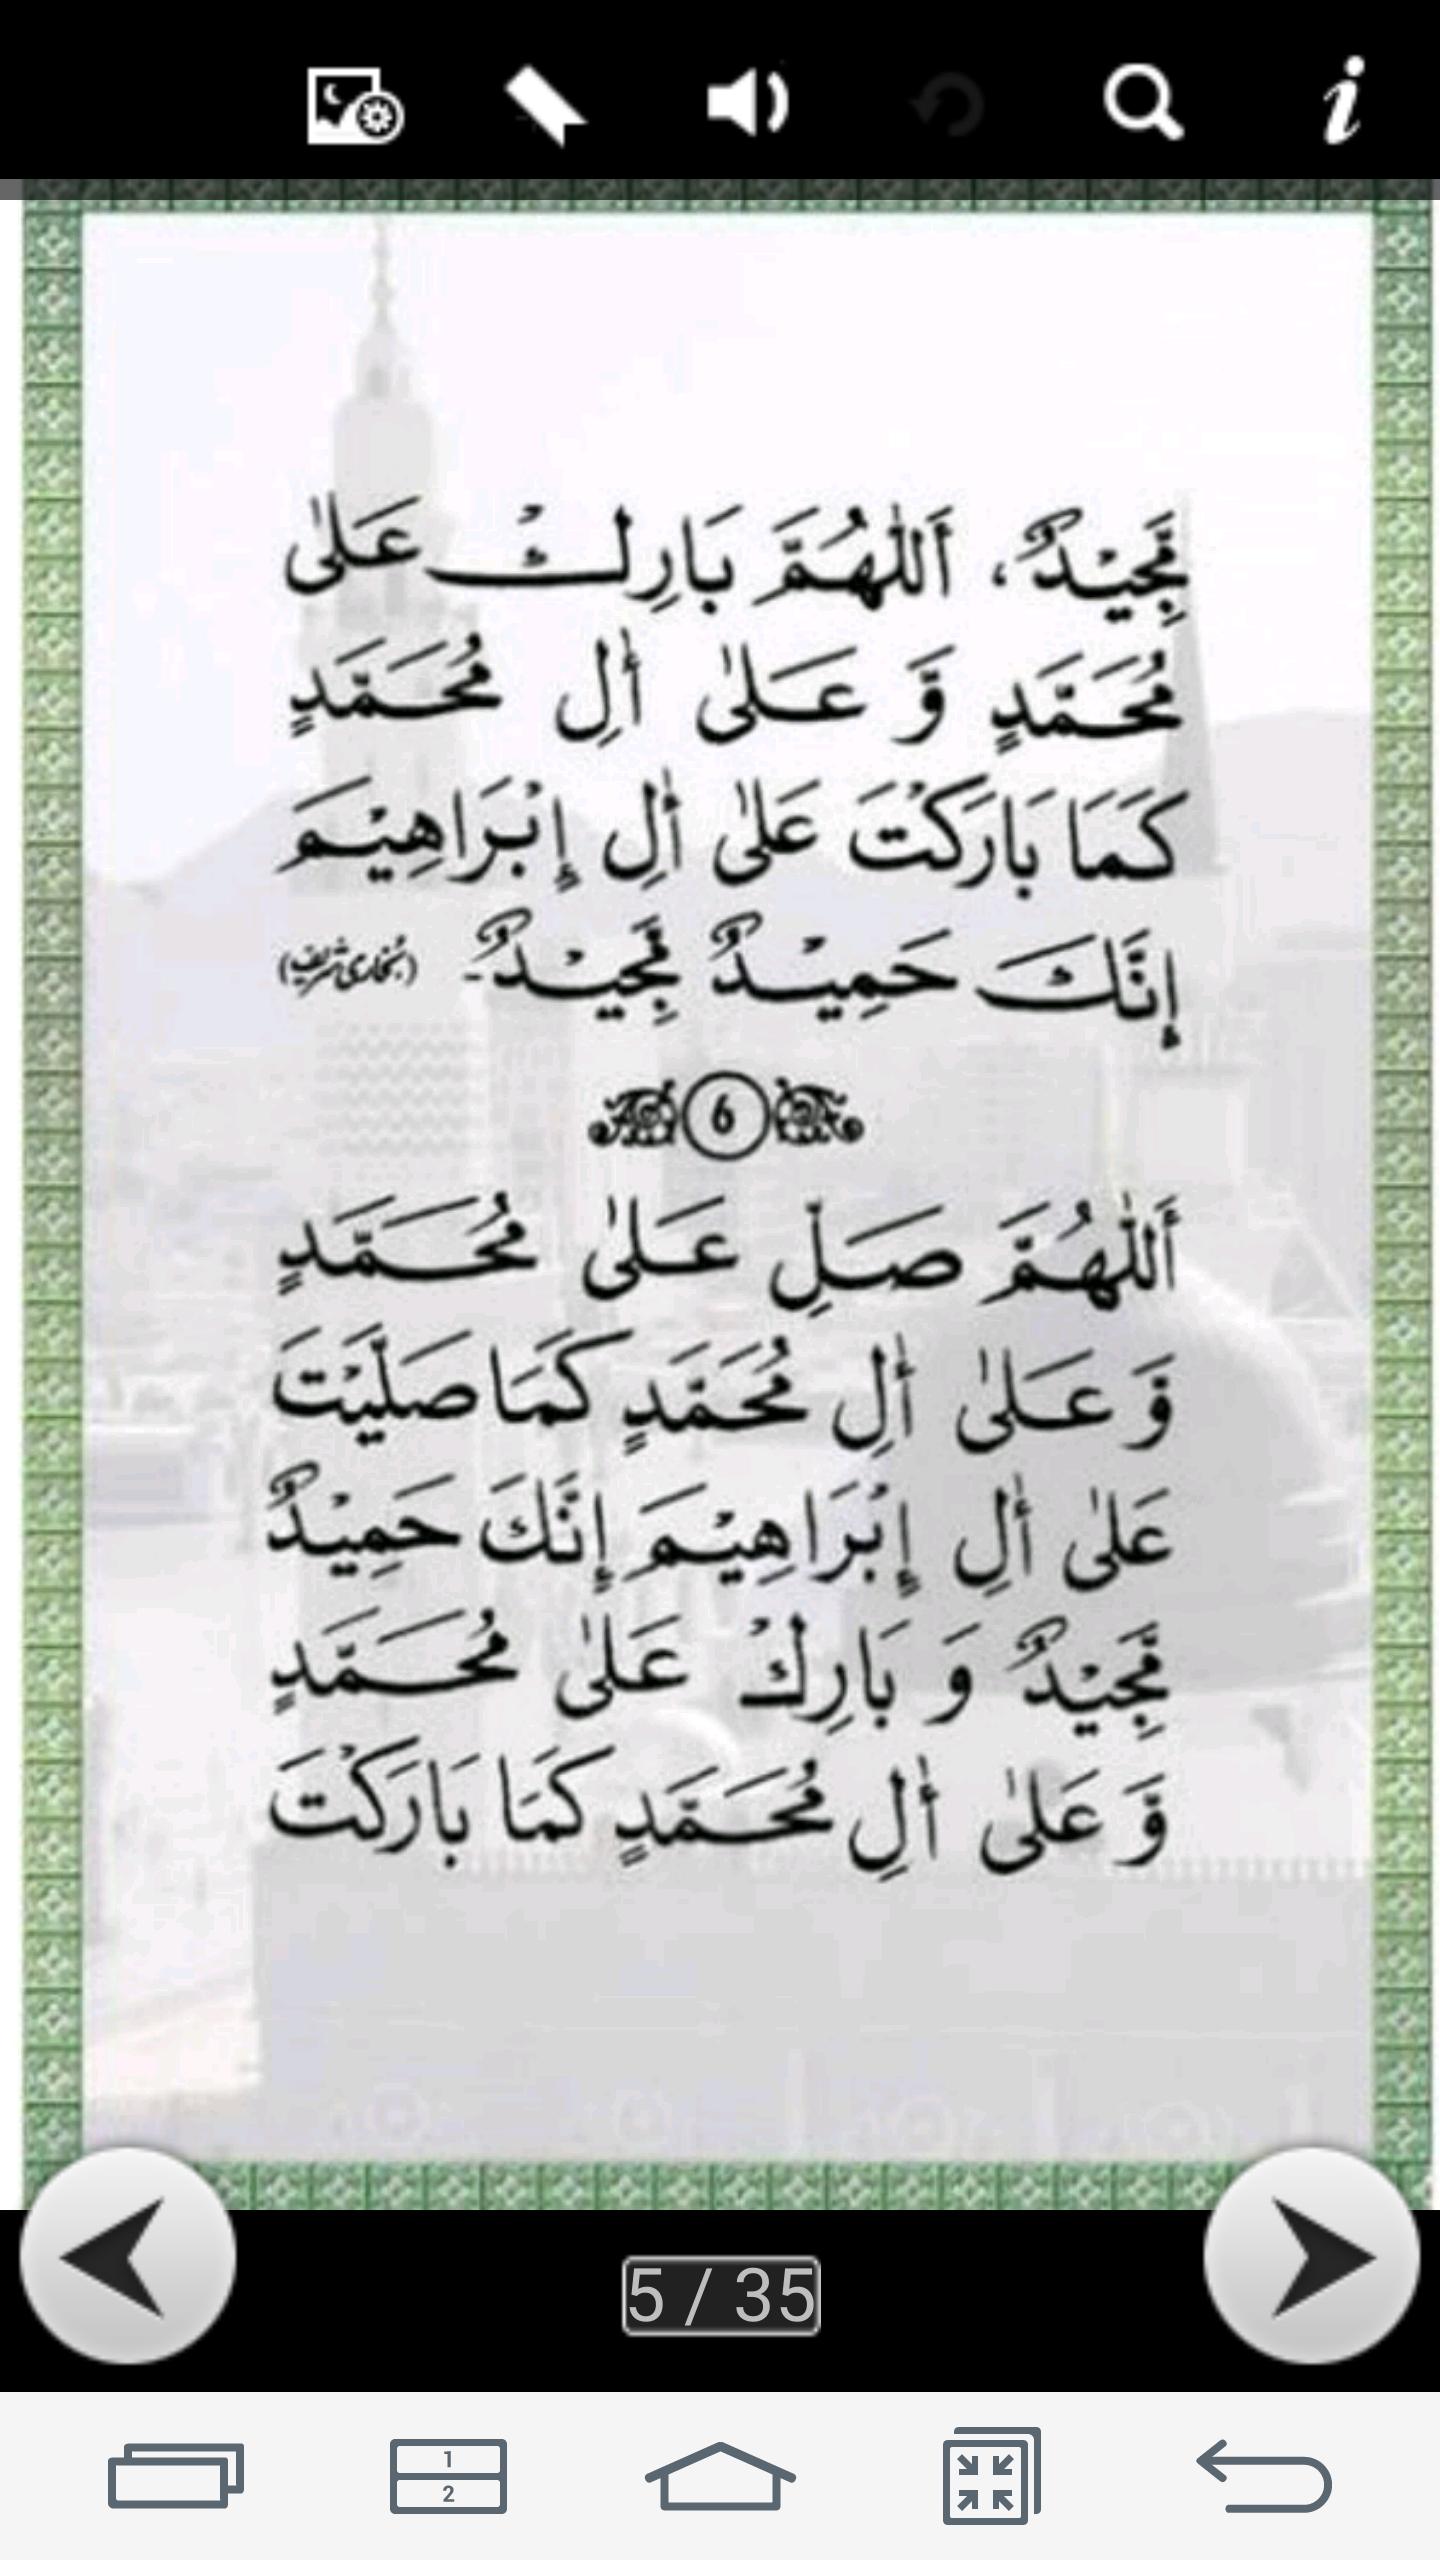 مَّجِيْدٌ، أَللّٰهُمَّ بَارِكْ عَلٰى
مُحَمَّدٍ وَّ عَلٰى أٰلِ مُحَمَّدٍ
كَمَا بَارَكْتَ عَلٰى أٰلِ إِبْرَاهِيْمَ
إِنَّكَ حَمِيْدٌ مَّجِيْدٌ۔ (بخاری شریف)
6
أَللّٰهُمَّ صَلِّ عَلٰى مُحَمَّدٍ
وَّ عَلٰى أٰلِ مُحَمَّدٍ كَمَا صَلَّيْتَ
عَلٰى أٰلِ إِبْرَاهِيْمَ إِنَّكَ حَمِيْدٌ
مَّجِيْدٌ وَ بَارِكْ عَلٰى مُحَمَّدٍ
وَّ عَلٰى أٰلِ مُحَمَّدٍ كَمَا بَارَكْتَ
5 / 35
1
2